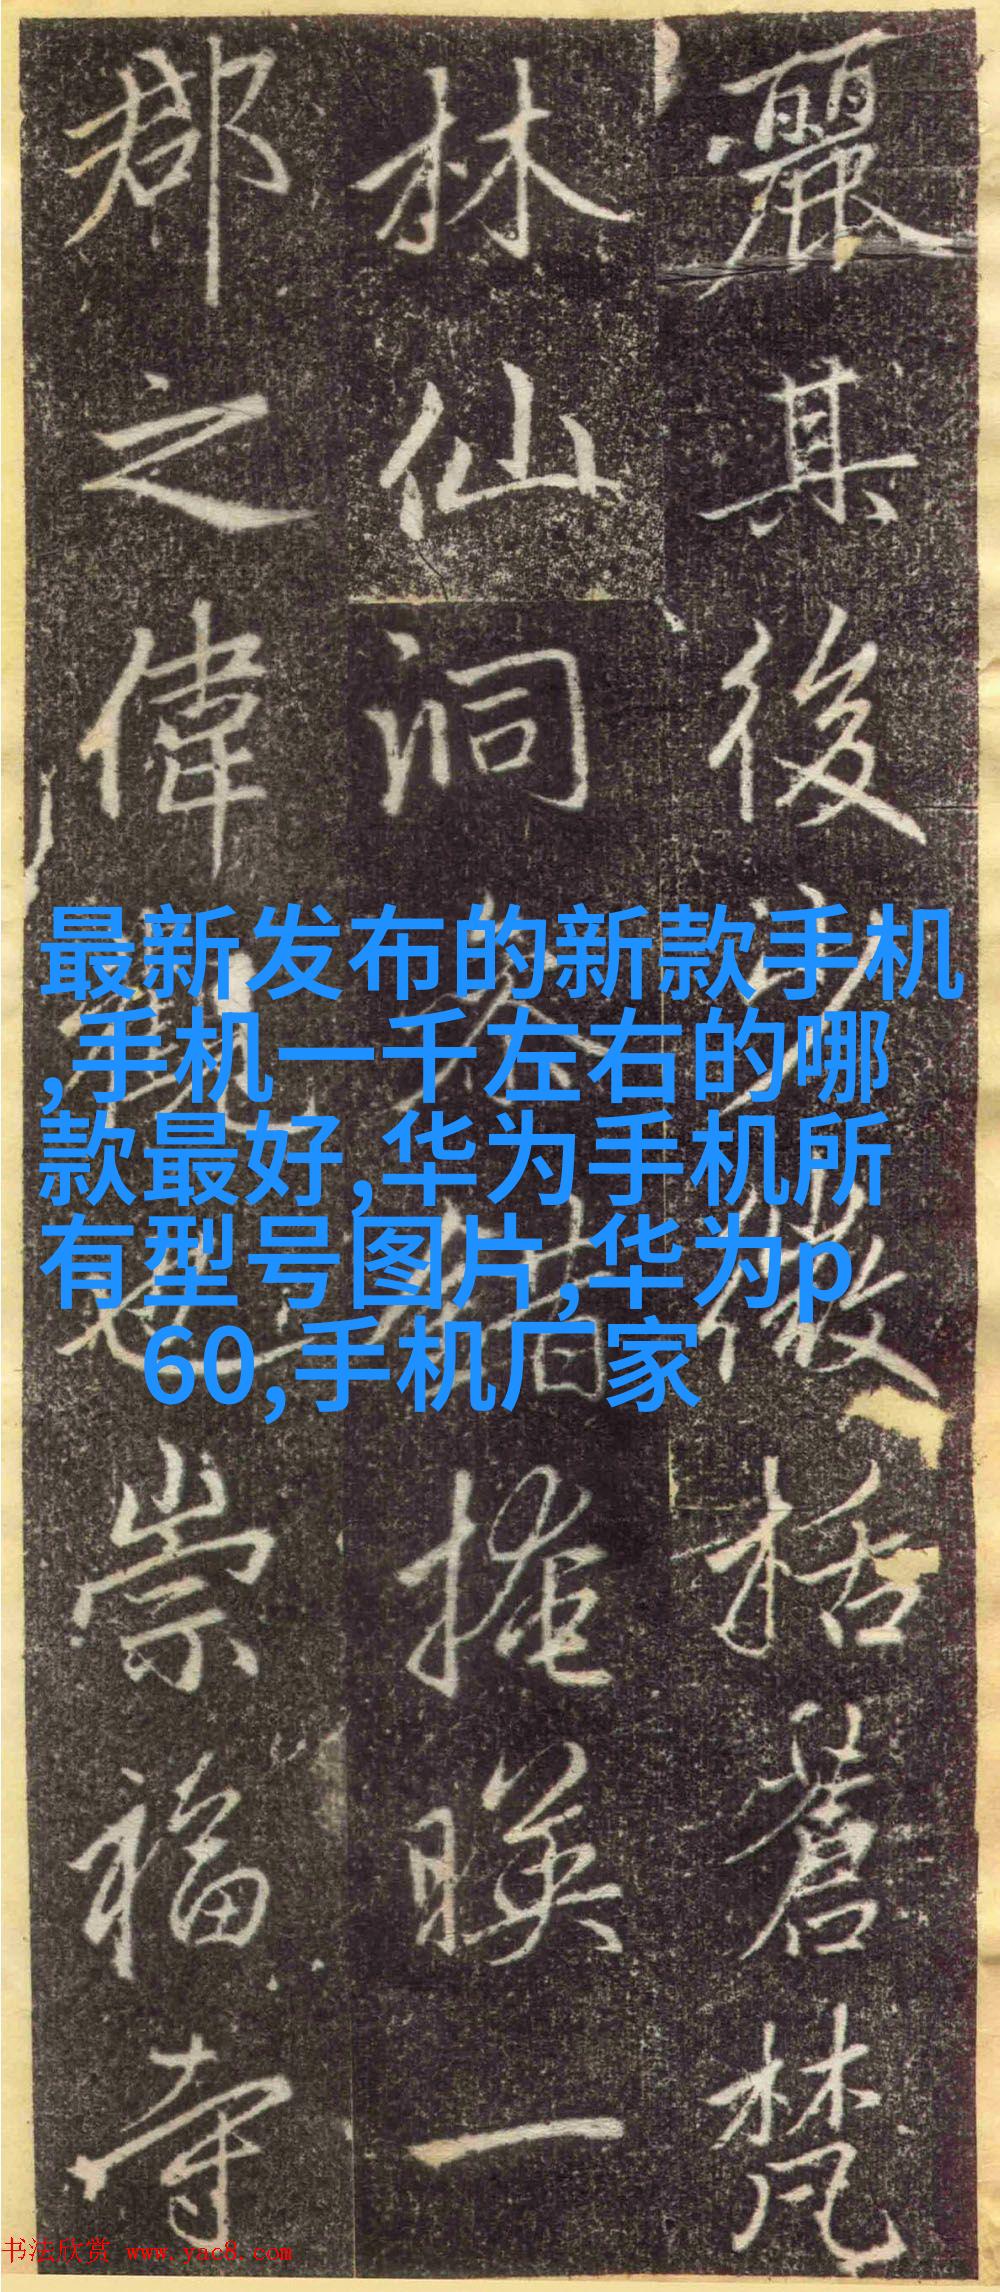 麗其後括蒼梵
林仙洞掩暎一
郡之偉觀崇福寺
最新发布的新款手机
,手机一千左右的哪
款最好,华为手机所
有型号图片,华为p
60,手机厂家
书法欣赏 www.yac8.com